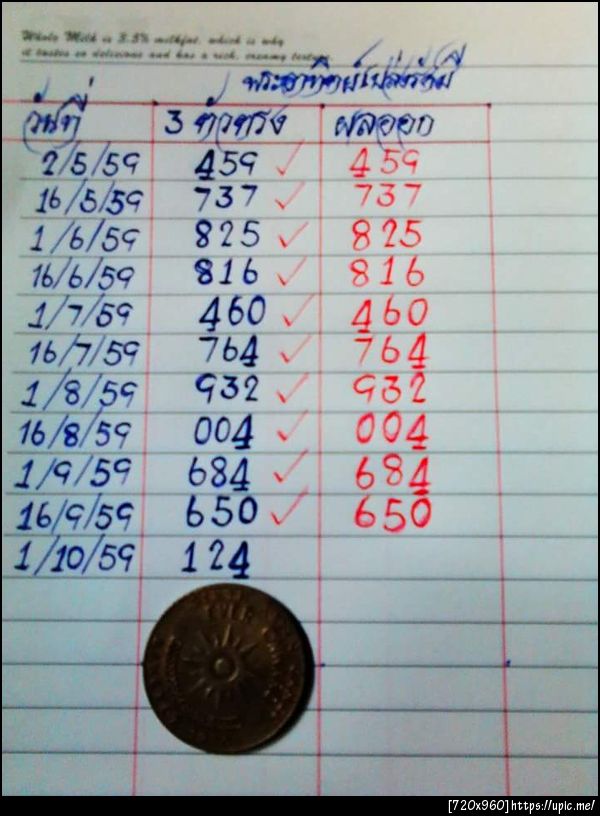 Whole Milk is 3.5% milkfat, which is why
it tastes so delicious and has a rich, creamy texture
พระอาทิตย์เปล่งรัศมี
วันที่ 3 ตัวตรง ผลออก
2/5/59 459 ✓ 459
16/5/59 737 ✓ 737
1/6/59 825 ✓ 825
16/6/59 816 ✓ 816
1/7/59 460 ✓ 460
16/7/59 764 ✓ 764
1/8/59 932 ✓ 932
16/8/59 004 ✓ 004
1/9/59 684 ✓ 684
16/9/59 650 ✓ 650
1/10/59 124
[720x960]https://upic.me/